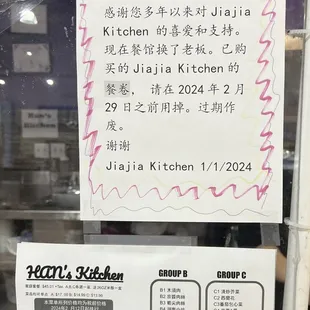 感谢您多年以来对 Jiajia
Kitchen 的喜爱和支持。
现在餐馆换了老板。已购
买的 Jiajia Kitchen 的
餐卷， 请在 2024 年 2 月
29 日之前用掉。过期作
废。
谢谢
Jiajia Kitchen 1/1/2024
Han's
Kitchen
HAN's Kitchen
GROUP B
B1 木须肉
B2 京酱肉丝
B3
B4
GROUP C
C1 清炒芥菜
C2 西兰花
C3 番茄包心菜